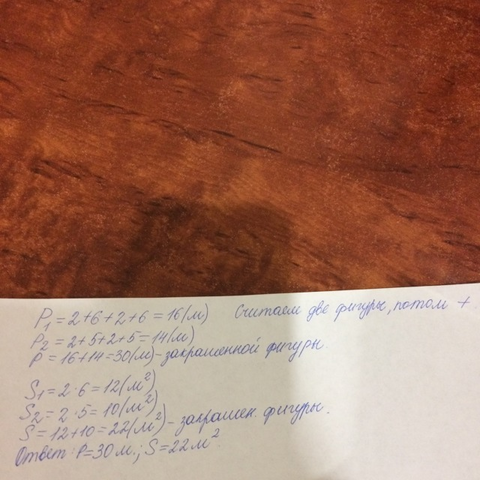 P₁ = 2+6+2+6 = 16(м) Считаем две фигуры, потом +
P₂ = 2+5+2+5 = 14(м)
P = 16+14 = 30(м) - закрашенной фигуры.
S₁ = 2·6 = 12(м²)
S₂ = 2·5 = 10(м²)
S = 12+10 = 22(м²) - закрашен. фигуры.
Ответ: P=30м.; S=22м².